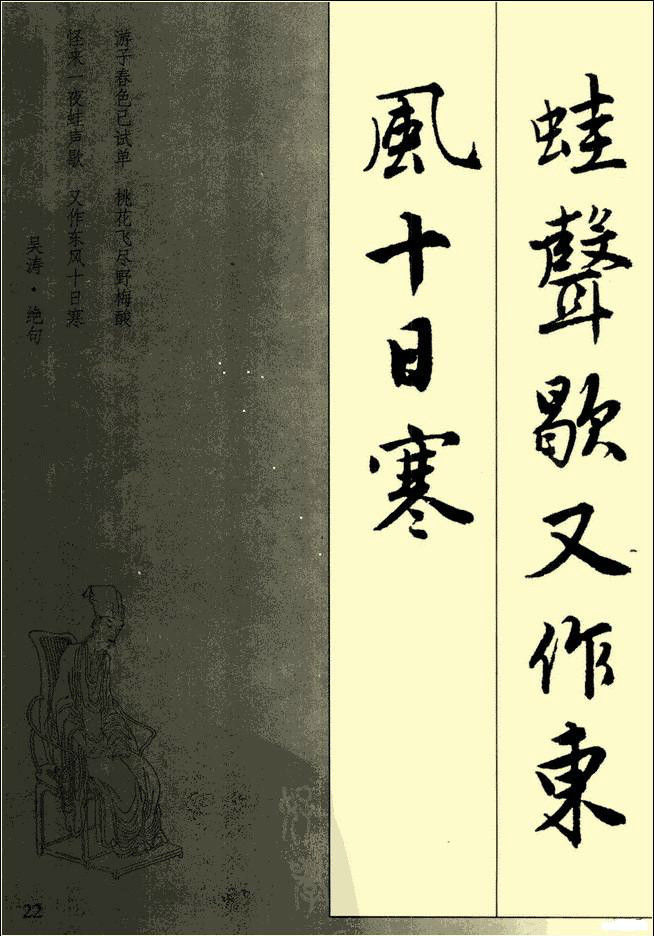 蛙聲歇又作東
風十日寒
游子春色已试单 桃花飞尽野梅酸
怪来一夜蛙声歇 又作东风十日寒
吴涛·绝句
22